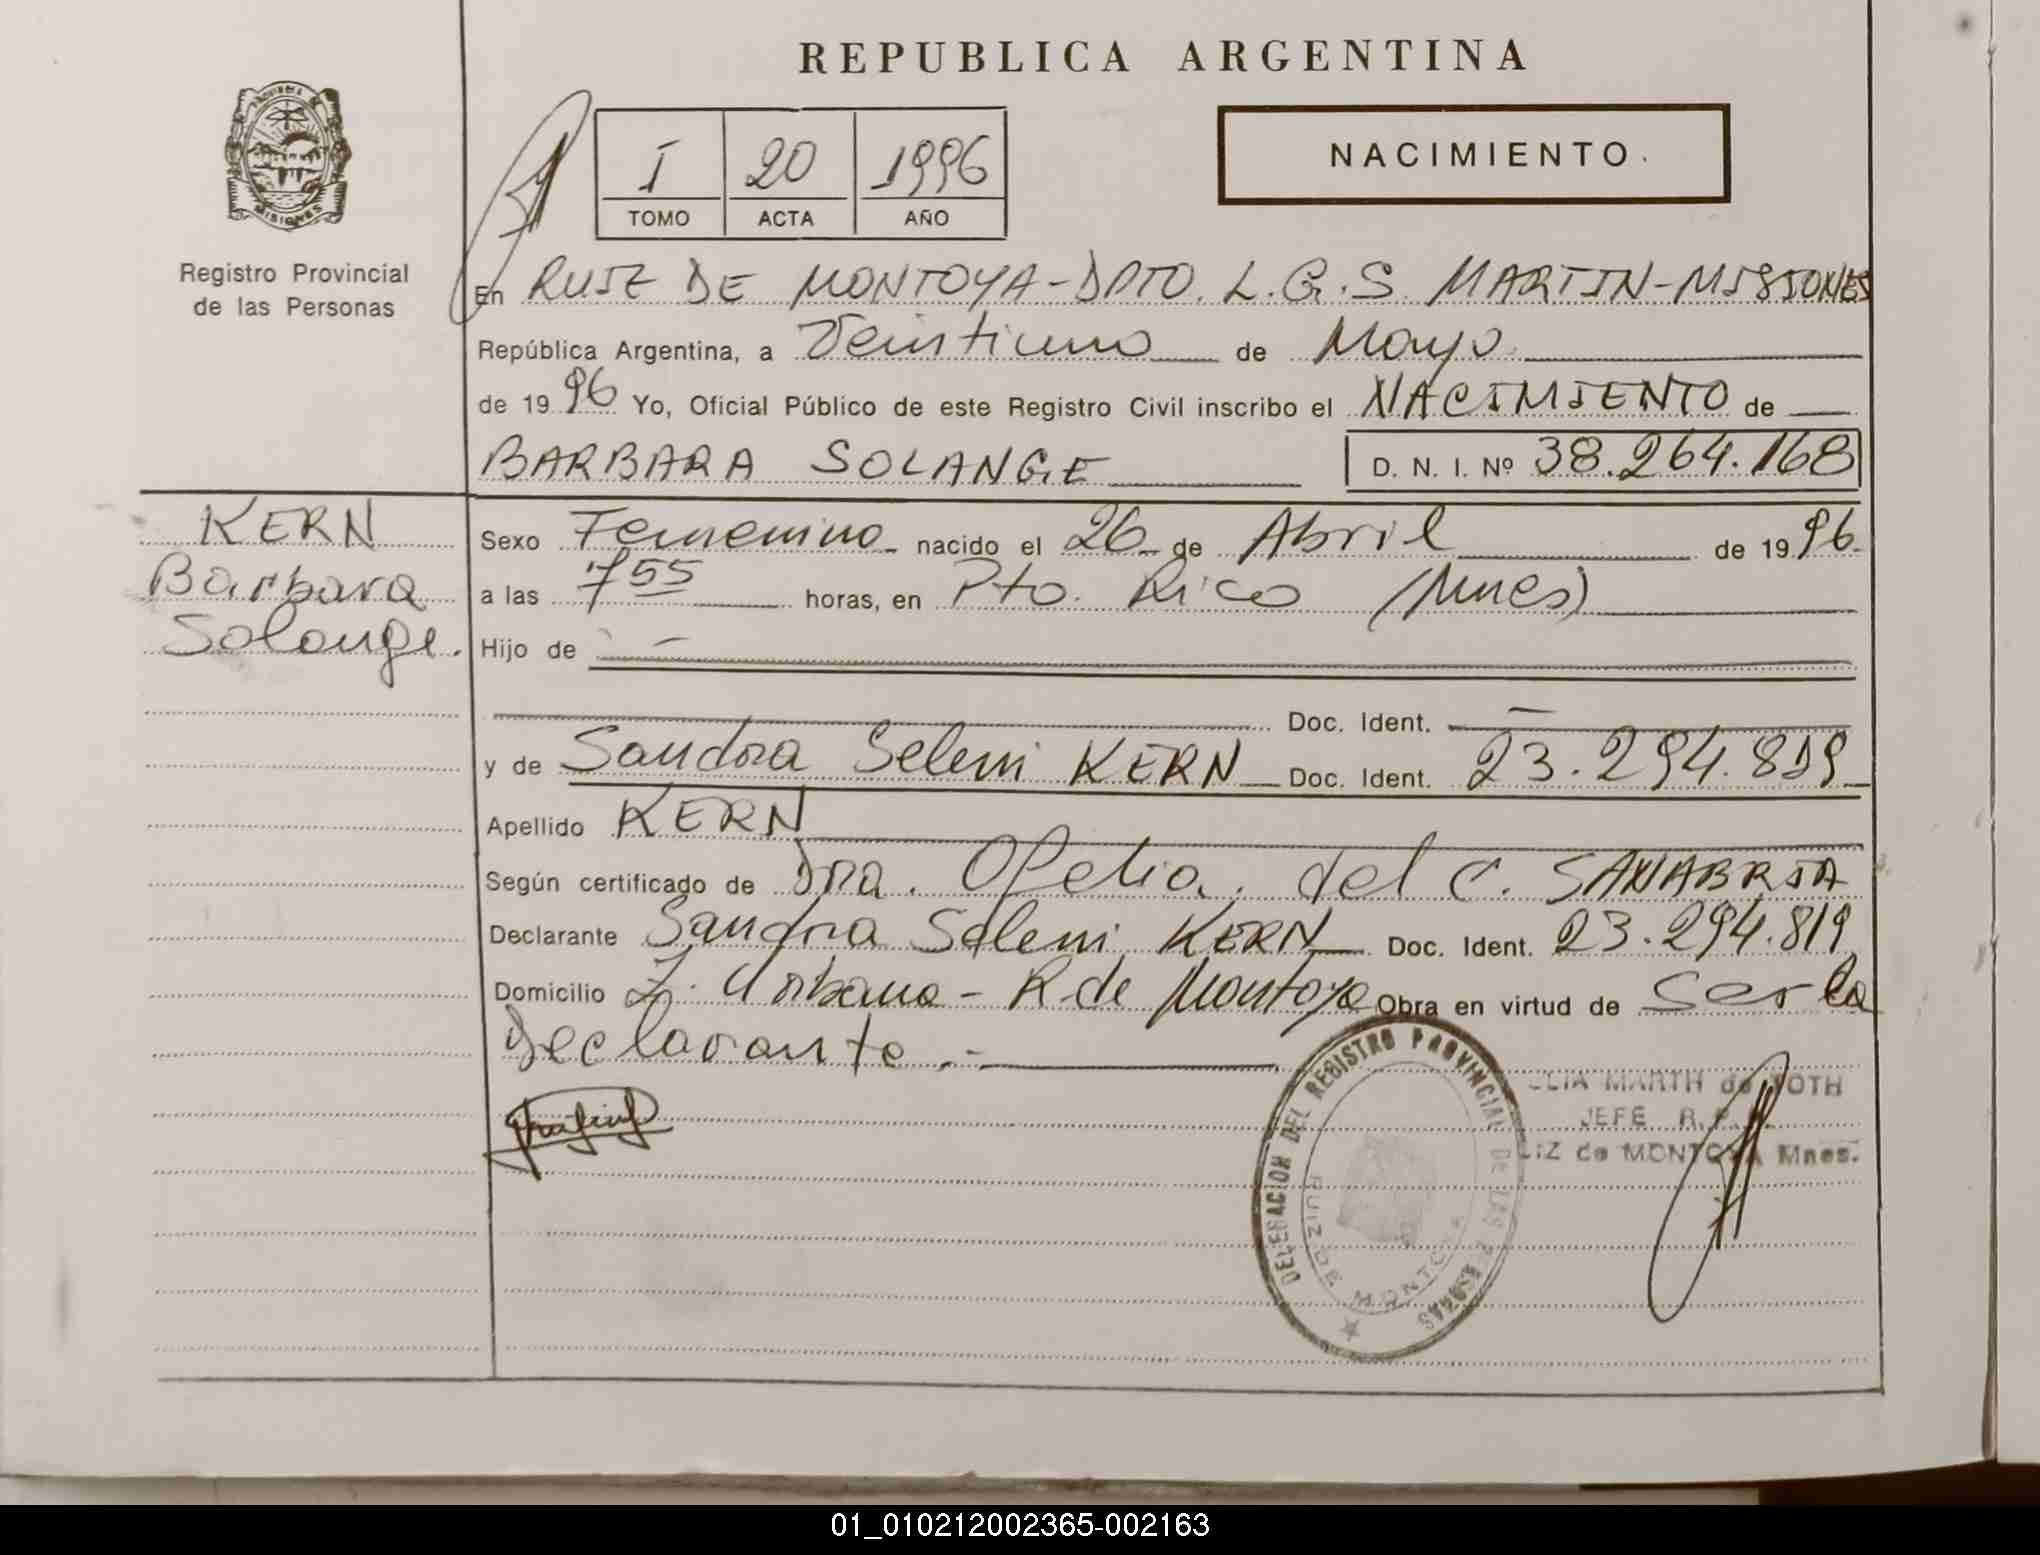 REPUBLICA ARGENTINA
MISIONES
Registro Provincial
de las Personas
I 20 1996
TOMO ACTA AÑO
NACIMIENTO
En RUIZ DE MONTOYA-DPTO. L.G.S. MARTIN-MISIONES
República Argentina, a Veintiuno de Mayo
de 1996 Yo, Oficial Público de este Registro Civil inscribo el NACIMIENTO de
BARBARA SOLANGE D. N. I. Nº 38.264.168
KERN
Barbara
Solange.
Sexo Femenino nacido el 26 de Abril de 1996
a las 755 horas, en Pto. Rico (Mnes)
Hijo de —
Doc. Ident. —
y de Sandra Seleni KERN Doc. Ident. 23.294.819
Apellido KERN
Según certificado de Dra. Ofelia del C. SANABRIA
Declarante Sandra Seleni KERN Doc. Ident. 23.294.819
Domicilio Z. Urbana - R. de Montoya Obra en virtud de Ser la
Declarante.-
DELEGACION DEL REGISTRO PROVINCIAL DE LAS PERSONAS
RUIZ DE MONTOYA
MARTH de TOTH
JEFE R.P.
de MONTOYA Mnes.
01_010212002365-002163